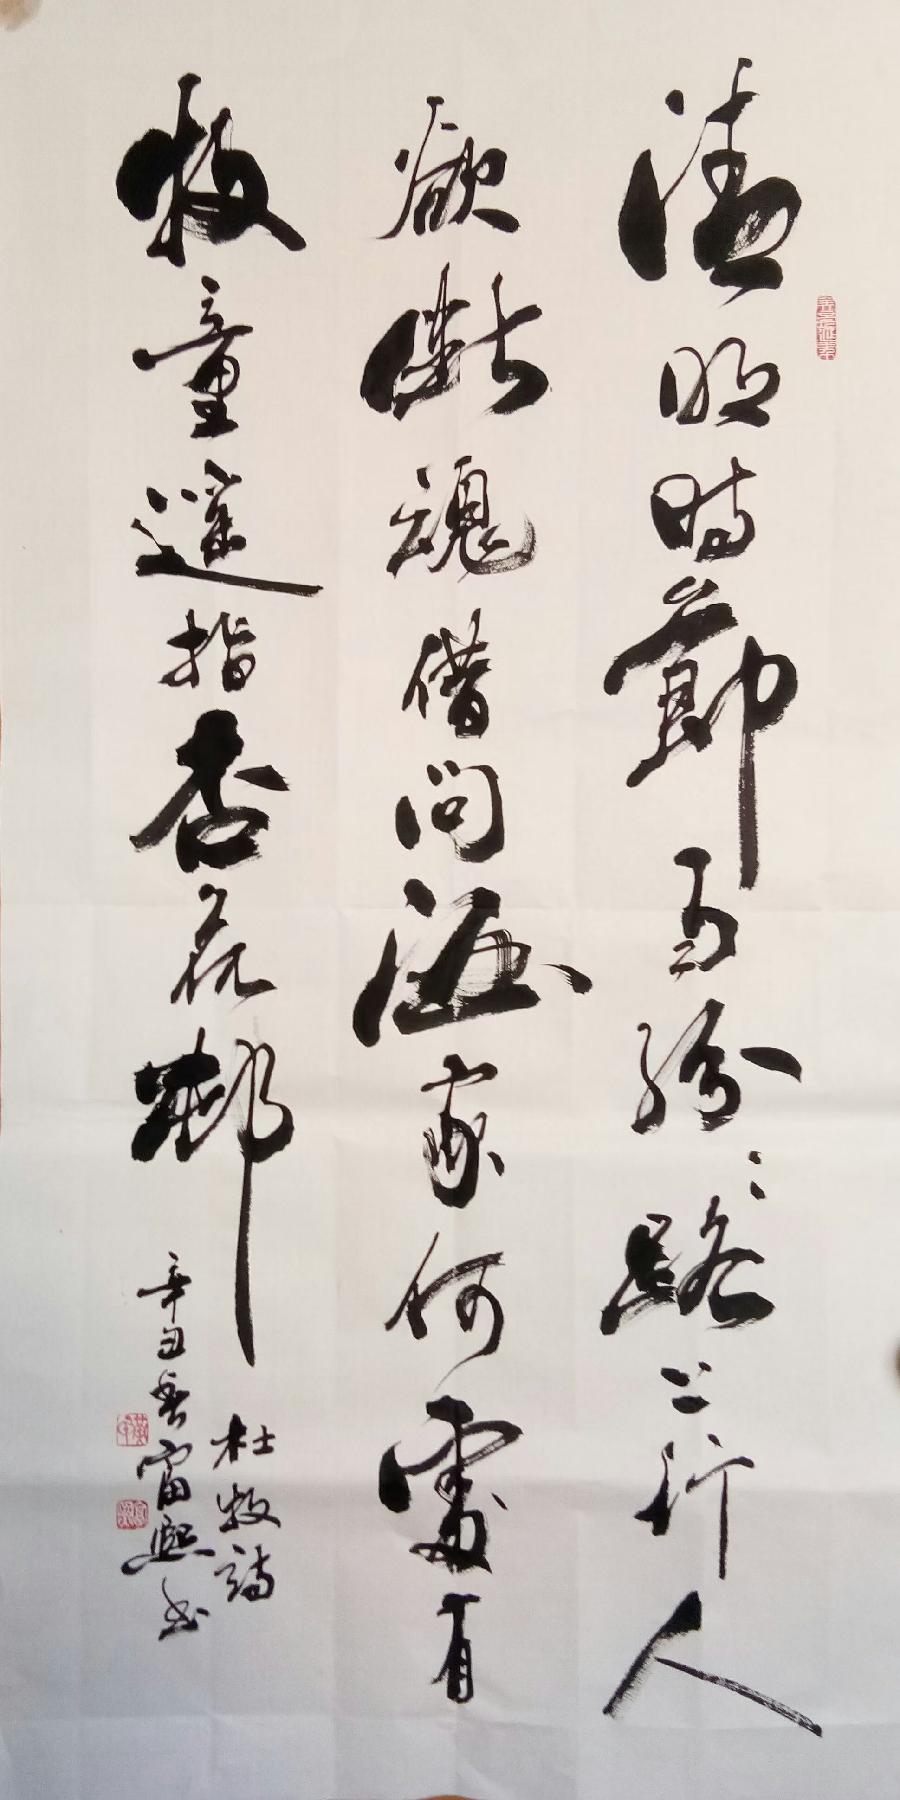 清明時節雨紛〻路上行人
欲斷魂借問酒家何處有
牧童遙指杏花邨
杜牧詩
辛丑春富熙书